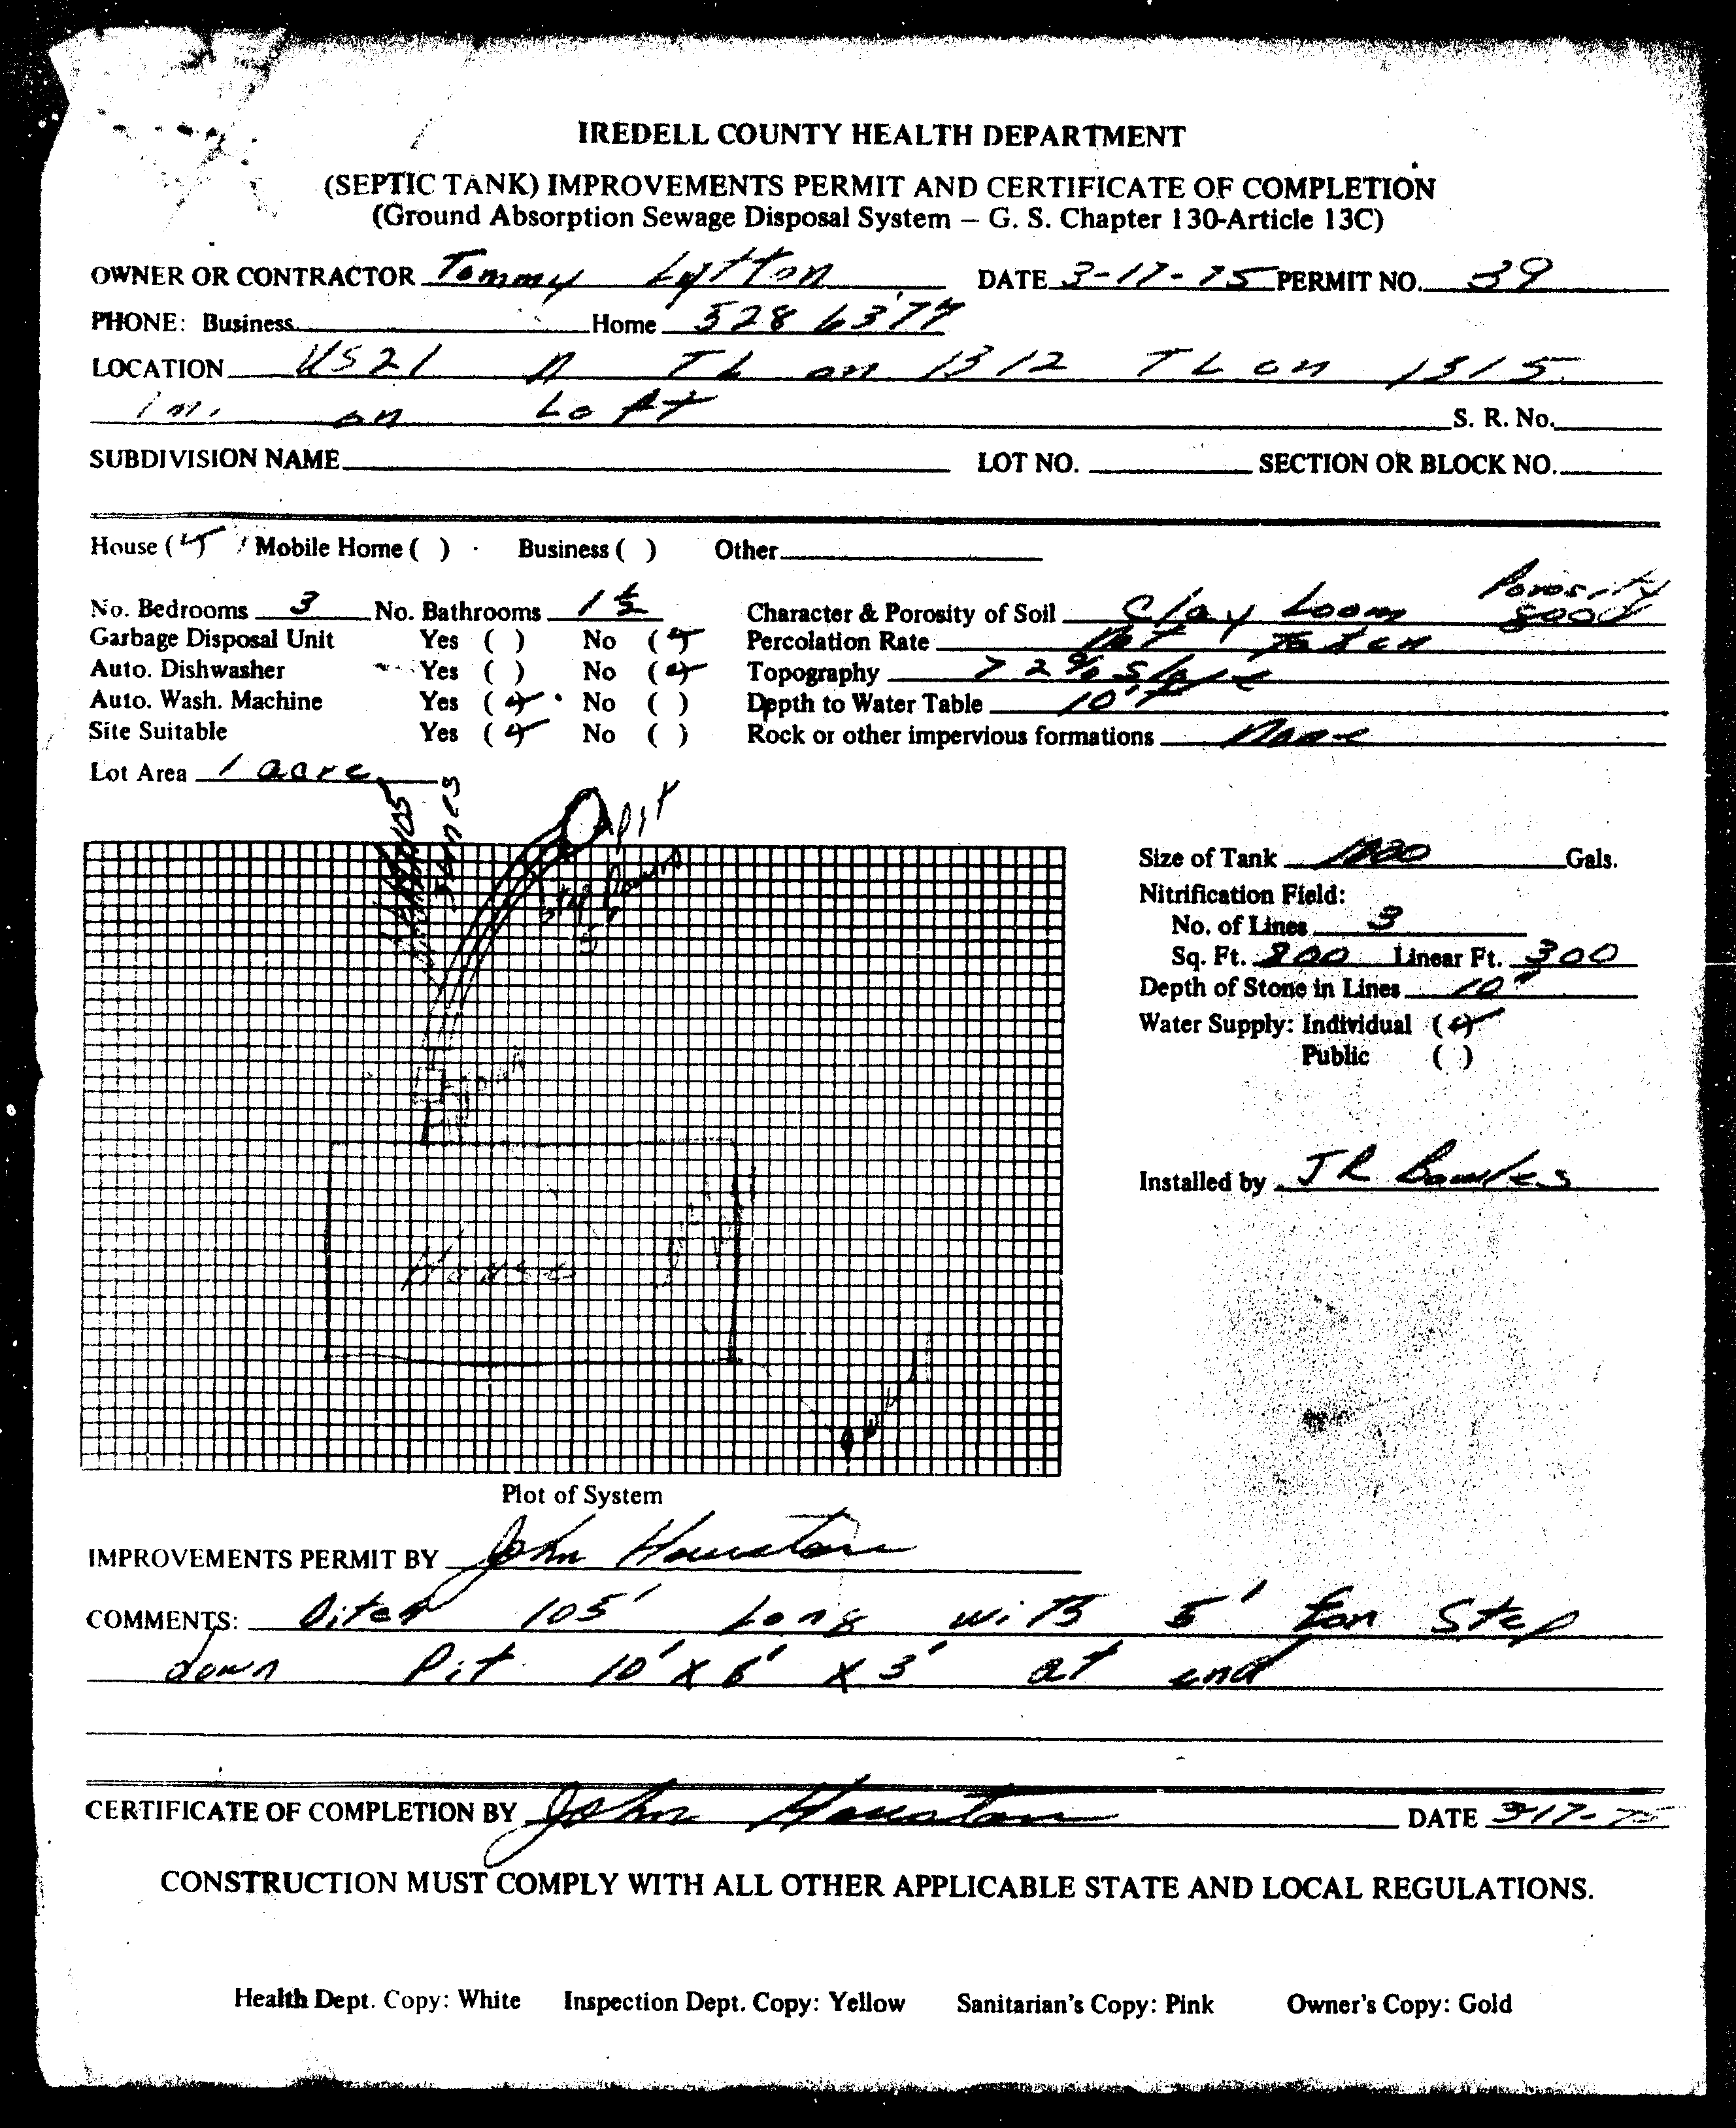 IREDELL COUNTY HEALTH DEPARTMENT
(SEPTIC TANK) IMPROVEMENTS PERMIT AND CERTIFICATE OF COMPLETION
(Ground Absorption Sewage Disposal System – G. S. Chapter 130-Article 13C)
OWNER OR CONTRACTOR Tommy Lytton DATE 3-17-75 PERMIT NO. 39
PHONE: Business Home 528 6377
LOCATION US21 N TL on 1312 TL on 1315
1 m. on Left S. R. No.
SUBDIVISION NAME LOT NO. SECTION OR BLOCK NO.
House ( ) Mobile Home ( ) Business ( ) Other
No. Bedrooms 3 No. Bathrooms 1 ½ Character & Porosity of Soil Clay Loam Porosity good
Garbage Disposal Unit Yes ( ) No ( ) Percolation Rate Not Taken
Auto. Dishwasher Yes ( ) No ( ) Topography > 2% Slope
Auto. Wash. Machine Yes ( ) No ( ) Depth to Water Table 10'+
Site Suitable Yes ( ) No ( ) Rock or other impervious formations None
Lot Area 1 acre
3 Lines
Pit
Step Downs
5'
Size of Tank 1000 Gals.
Nitrification Field:
No. of Lines 3
Sq. Ft. 800 Linear Ft. 300
Depth of Stone in Lines 10"
Water Supply: Individual ( )
Public ( )
House
Well
Installed by J R Bowles
Plot of System
IMPROVEMENTS PERMIT BY John Houston
COMMENTS: Ditch 105' Long with 5' for Step
down Pit 10' X 6' X 3' at end
CERTIFICATE OF COMPLETION BY John Houston DATE 3-17-75
CONSTRUCTION MUST COMPLY WITH ALL OTHER APPLICABLE STATE AND LOCAL REGULATIONS.
Health Dept. Copy: White Inspection Dept. Copy: Yellow Sanitarian's Copy: Pink Owner's Copy: Gold